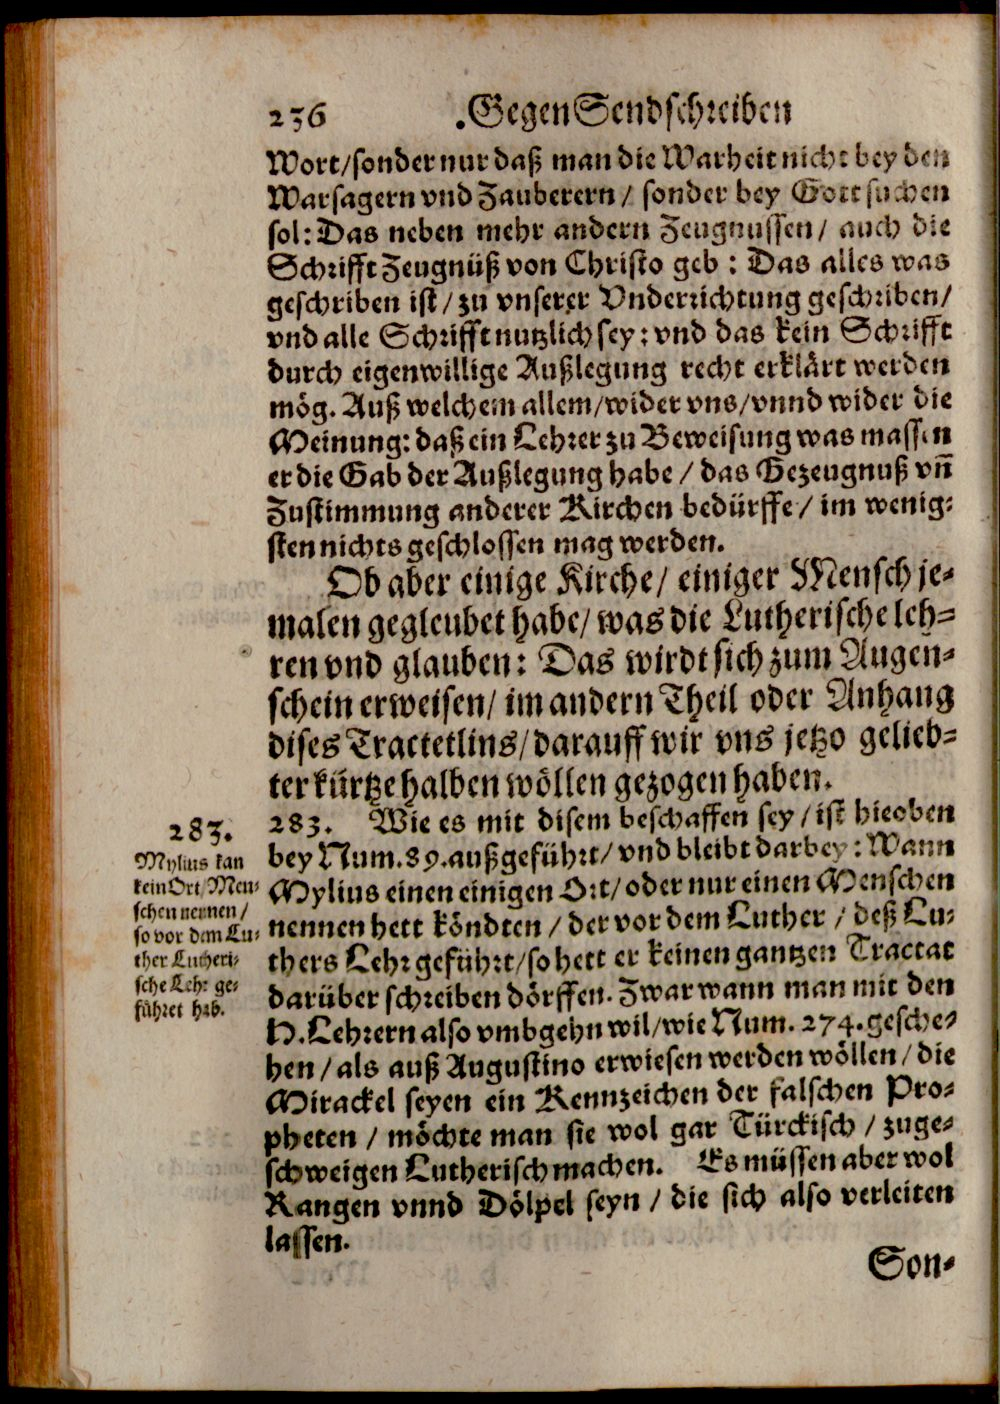 236 .Gegen Sendschreiben
Wort/sonder nur daß man die Warheit nicht bey den
Warsagern vnd Zauberern/ sonder bey Gott suchen
sol: Das neben mehr andern Zeugnussen/ auch die
Schrifft Zeugnüß von Christo geb: Das alles was
geschriben ist/zu vnserer Vnderrichtung geschriben/
vnd alle Schrifft nutzlich sey: vnd das kein Schrifft
durch eigenwillige Außlegung recht erklärt werden
mög. Auß welchem allem/wider vns/vnnd wider die
Meinung: daß ein Lehrer zu Beweisung was massen
er die Gab der Außlegung habe/ das Gezeugnuß vñ
Zustimmung anderer Kirchen bedürffe/ im wenig-
sten nichts geschlossen mag werden.
Ob aber einige Kirche/ einiger Mensch je-
malen gegleubet habe/ was die Lutherische leh-
ren vnd glauben: Das wirdt sich zum Augen-
schein erweisen/ im andern Theil oder Anhang
dises Tractetlins/darauff wir vns jetzo gelieb-
ter kürtze halben wöllen gezogen haben.
283.
Mylius kan
kein Ort/Men-
schen nennen/
so vor dem Lu-
ther Lutheri-
sche Lehr ge-
führet hab.
283. Wie es mit disem beschaffen sey/ist hieoben
bey Num.89.außgeführt/vnd bleibt darbey: Wann
Mylius einen einigen Ort/oder nur einen Menschen
nennen hett köndten/der vor dem Luther/deß Lu-
thers Lehr geführt/so hett er keinen gantzen Tractat
darüber schreiben dörffen. Zwar wann man mit den
H. Lehrern also vmbgehn wil/wie Num. 274. gesche-
hen/als auß Augustino erwiesen werden wöllen/die
Mirackel seyen ein Kennzeichen der falschen Pro-
pheten/ möchte man sie wol gar Türckisch/zuge-
schweigen Lutherisch machen. Es müssen aber wol
Rangen vnnd Dölpel seyn/ die sich also verleiten
lassen.
Son-